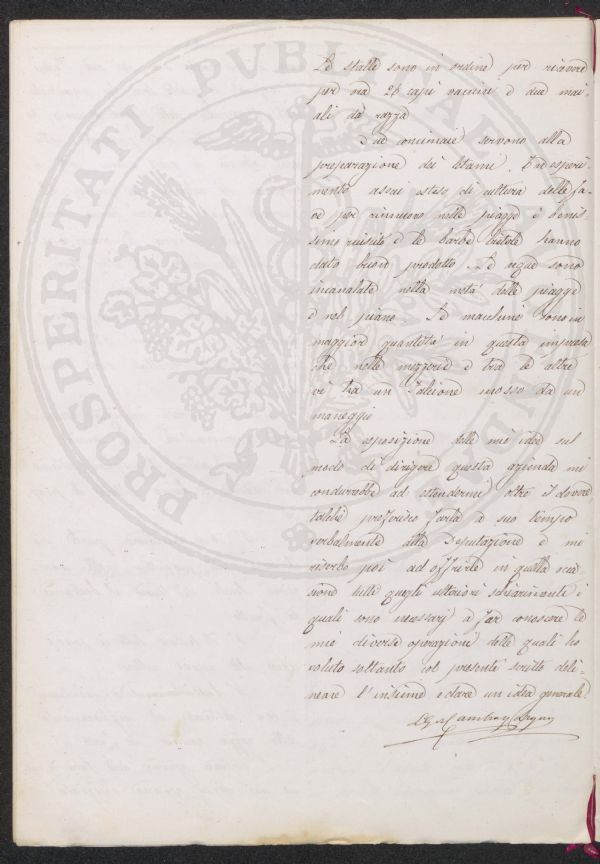 Le stalle sono in ordine per ricevere
per ora 28 capi vaccini e due mai-
ali da razza
Due concimaie servono alla
preparazione dei letami. Un esperi-
mento assai esteso di cultura delle fa-
ve per rinnuovo nelle piagge è benis-
simo riuscito e le barbe bietole hanno
dato buon prodotto. Le acque sono
incanalate nella metà delle piagge
e nel piano. Le macchine sono in
maggiore quantità in questa impresa
che nelle mezzerie e tra le altre
vi ha un Falcione mosso da un
maneggio
La esposizione delle mie idee sul
modo di dirigere questa azienda mi
condurrebbe ad estendermi oltre il dovere
talchè preferisco farla a suo tempo
verbalmente alla Deputazione e mi
riserbo poi ad offrirle in quella occa-
sione tutti quegli ulteriori schiarimenti i
quali sono necessarj a far conoscere le
mie diverse operazioni delle quali ho
voluto soltanto col presente scritto deli-
neare l'insieme e dare un idea generale.
Cambray Digny
PROSPERITATI PVBLICAE